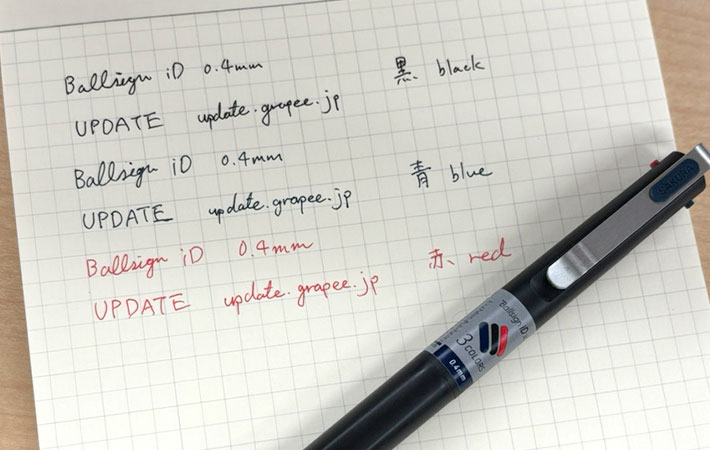 Ballsign iD 0.4mm 黒 black
UPDATE update.grapee.jp
Ballsign iD 0.4mm
UPDATE update.grapee.jp 青 blue
Ballsign iD 0.4mm 赤 red
UPDATE update.grapee.jp
SAKURA
Ballsign iD
3 COLORS
0.4mm